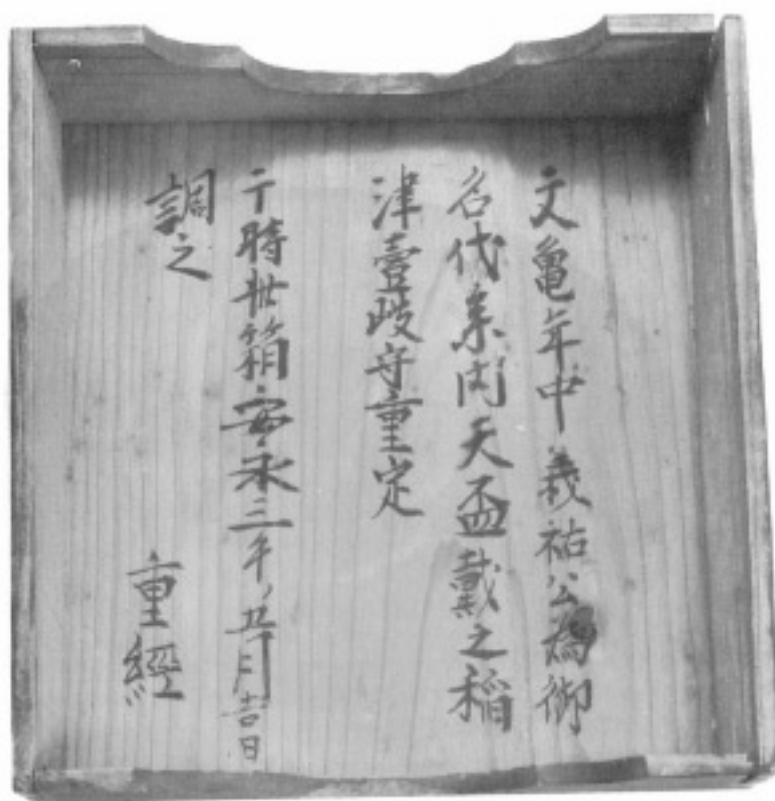 文亀年中義祐公為御
名代参内天盃戴之稲
津壹岐守重定
于時此箱安永三年五月吉日
調之
重經